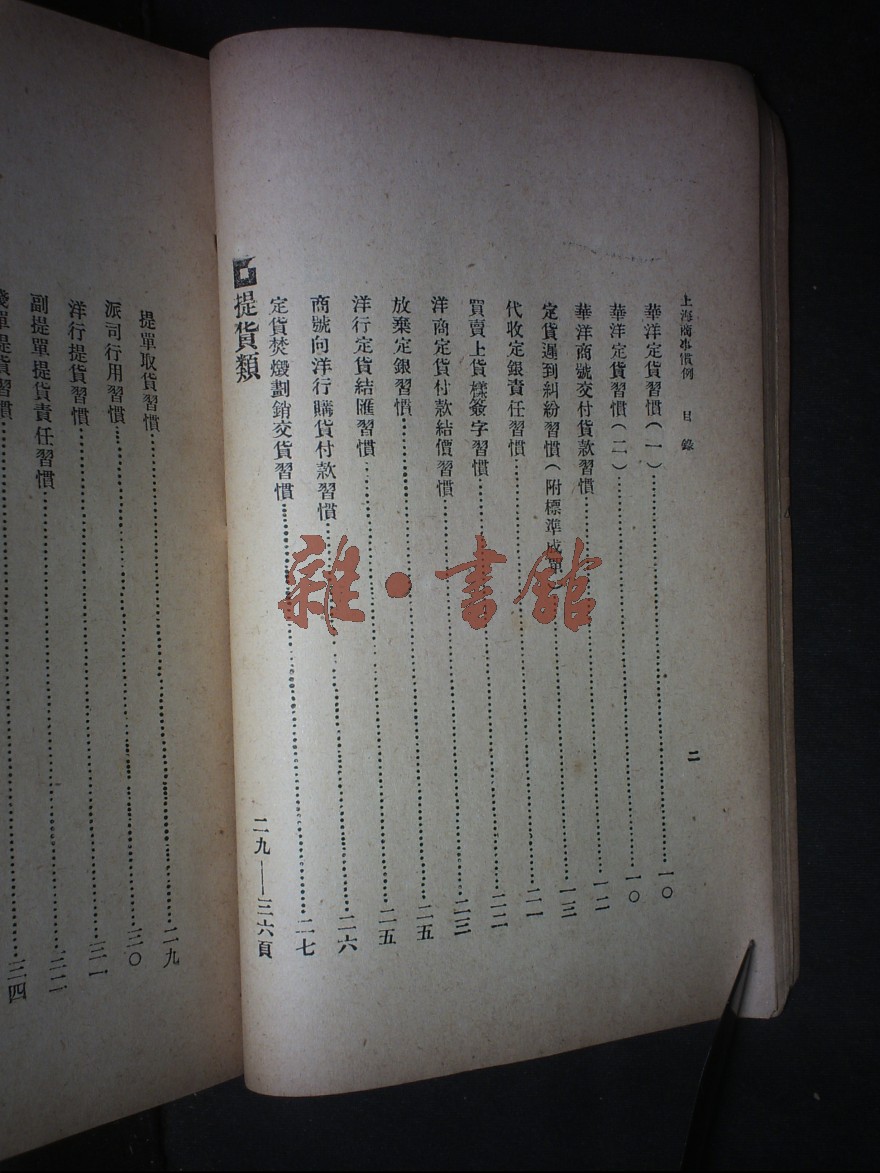 上海商事慣例 目錄 二
華洋定貨習慣(一)……一〇
華洋定貨習慣(二)……一〇
華洋商號交付貨款習慣……一二
定貨遲到糾紛習慣(附標準成單……一三
代收定銀責任習慣……二一
買賣上貨樣簽字習慣……二二
洋商定貨付款結價習慣……二三
放棄定銀習慣……二五
洋行定貨結匯習慣……二五
商號向洋行購貨付款習慣……二六
定貨焚燬劃銷交貨習慣……二七
提貨類 二九——三六頁
提單取貨習慣……二九
派司行用習慣……三〇
洋行提貨習慣……三一
副提單提貨責任習慣……三二
單提貨習慣……三四
雜·書館